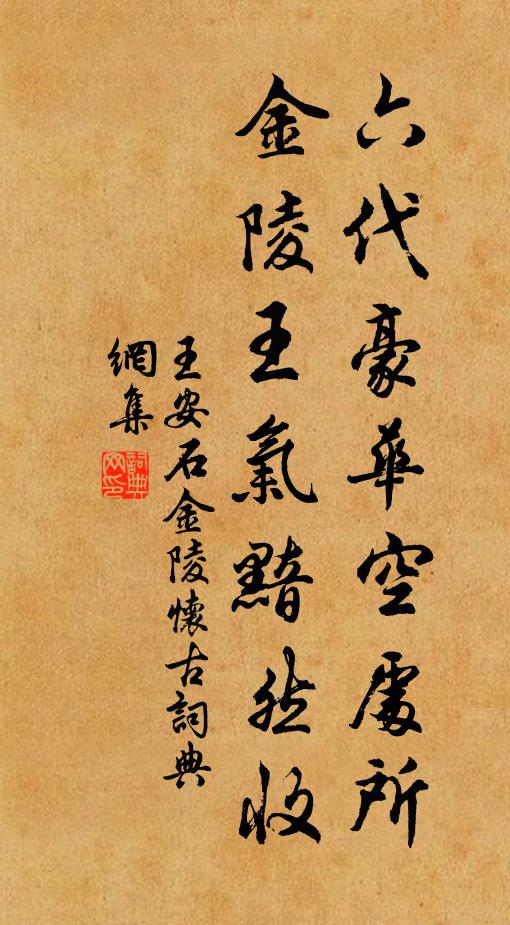 六代豪華空處所
金陵王氣黯然收
王安石金陵懷古詞典
網集
詞典
网印